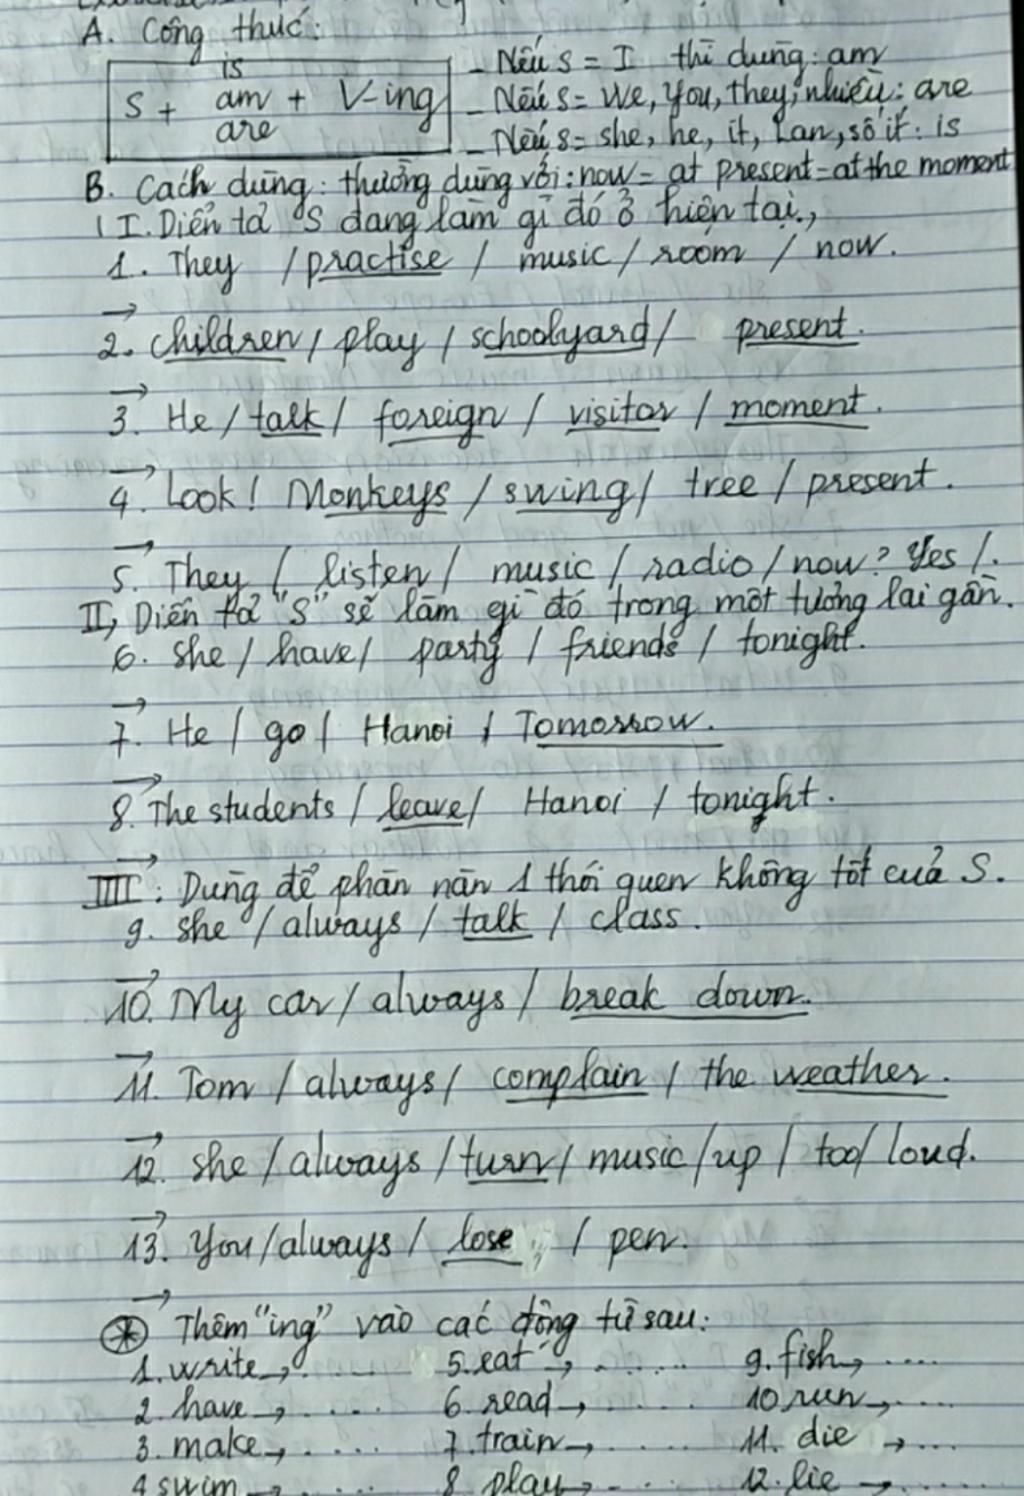 A. Công thức:
S + is am are + V-ing
- Nếu S = I thì dùng: am
- Nếu S = We, you, they, nhiều: are
- Nếu S = she, he, it, Lan, số ít: is
B. Cách dùng: thường dùng với: now = at present = at the moment
I. Diễn tả "S đang làm gì đó ở hiện tại.,
1. They / practise / music / room / now.
→
2. children / play / schoolyard / present.
→
3. He / talk / foreign / visitor / moment.
→
4. Look! Monkeys / swing / tree / present.
→
5. They / listen / music / radio / now? Yes /.
II, Diễn tả "S" sẽ làm gì đó trong một tương lai gần.
6. she / have / party / friends / tonight.
→
7. He / go / Hanoi / Tomorrow.
→
8. The students / leave / Hanoi / tonight.
→
III: Dùng để phàn nàn 1 thói quen không tốt của S.
9. she / always / talk / class.
→
10. My car / always / break down.
→
11. Tom / always / complain / the weather.
→
12. she / always / turn / music / up / too / loud.
→
13. You / always / lose / pen.
→
* Thêm "ing" vào các động từ sau:
1. write → ..... 5. eat → ..... 9. fish → ....
2. have → ..... 6. read → ..... 10. run → ....
3. make → ..... 7. train → ..... 11. die → ....
4. swim → ..... 8. play → ..... 12. lie → ....